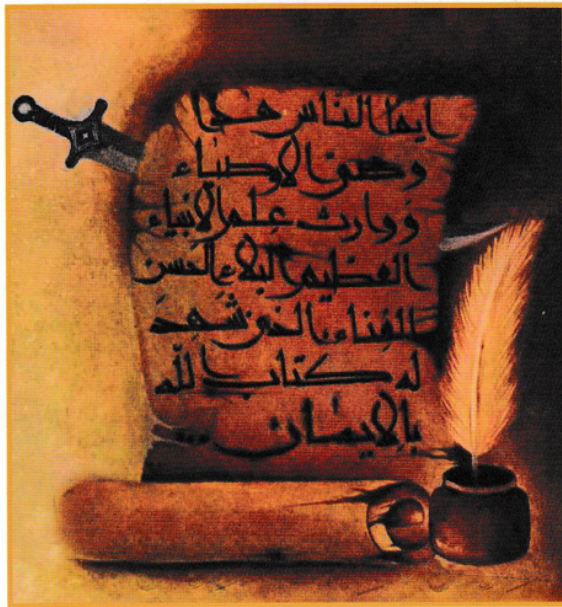 ايها الناس هذا
وصي الاوصياء
ووارث علم الانبياء
العظيم البلاء الحسن
الغناء الذي شهد
له كتاب الله
بالإيمان ..